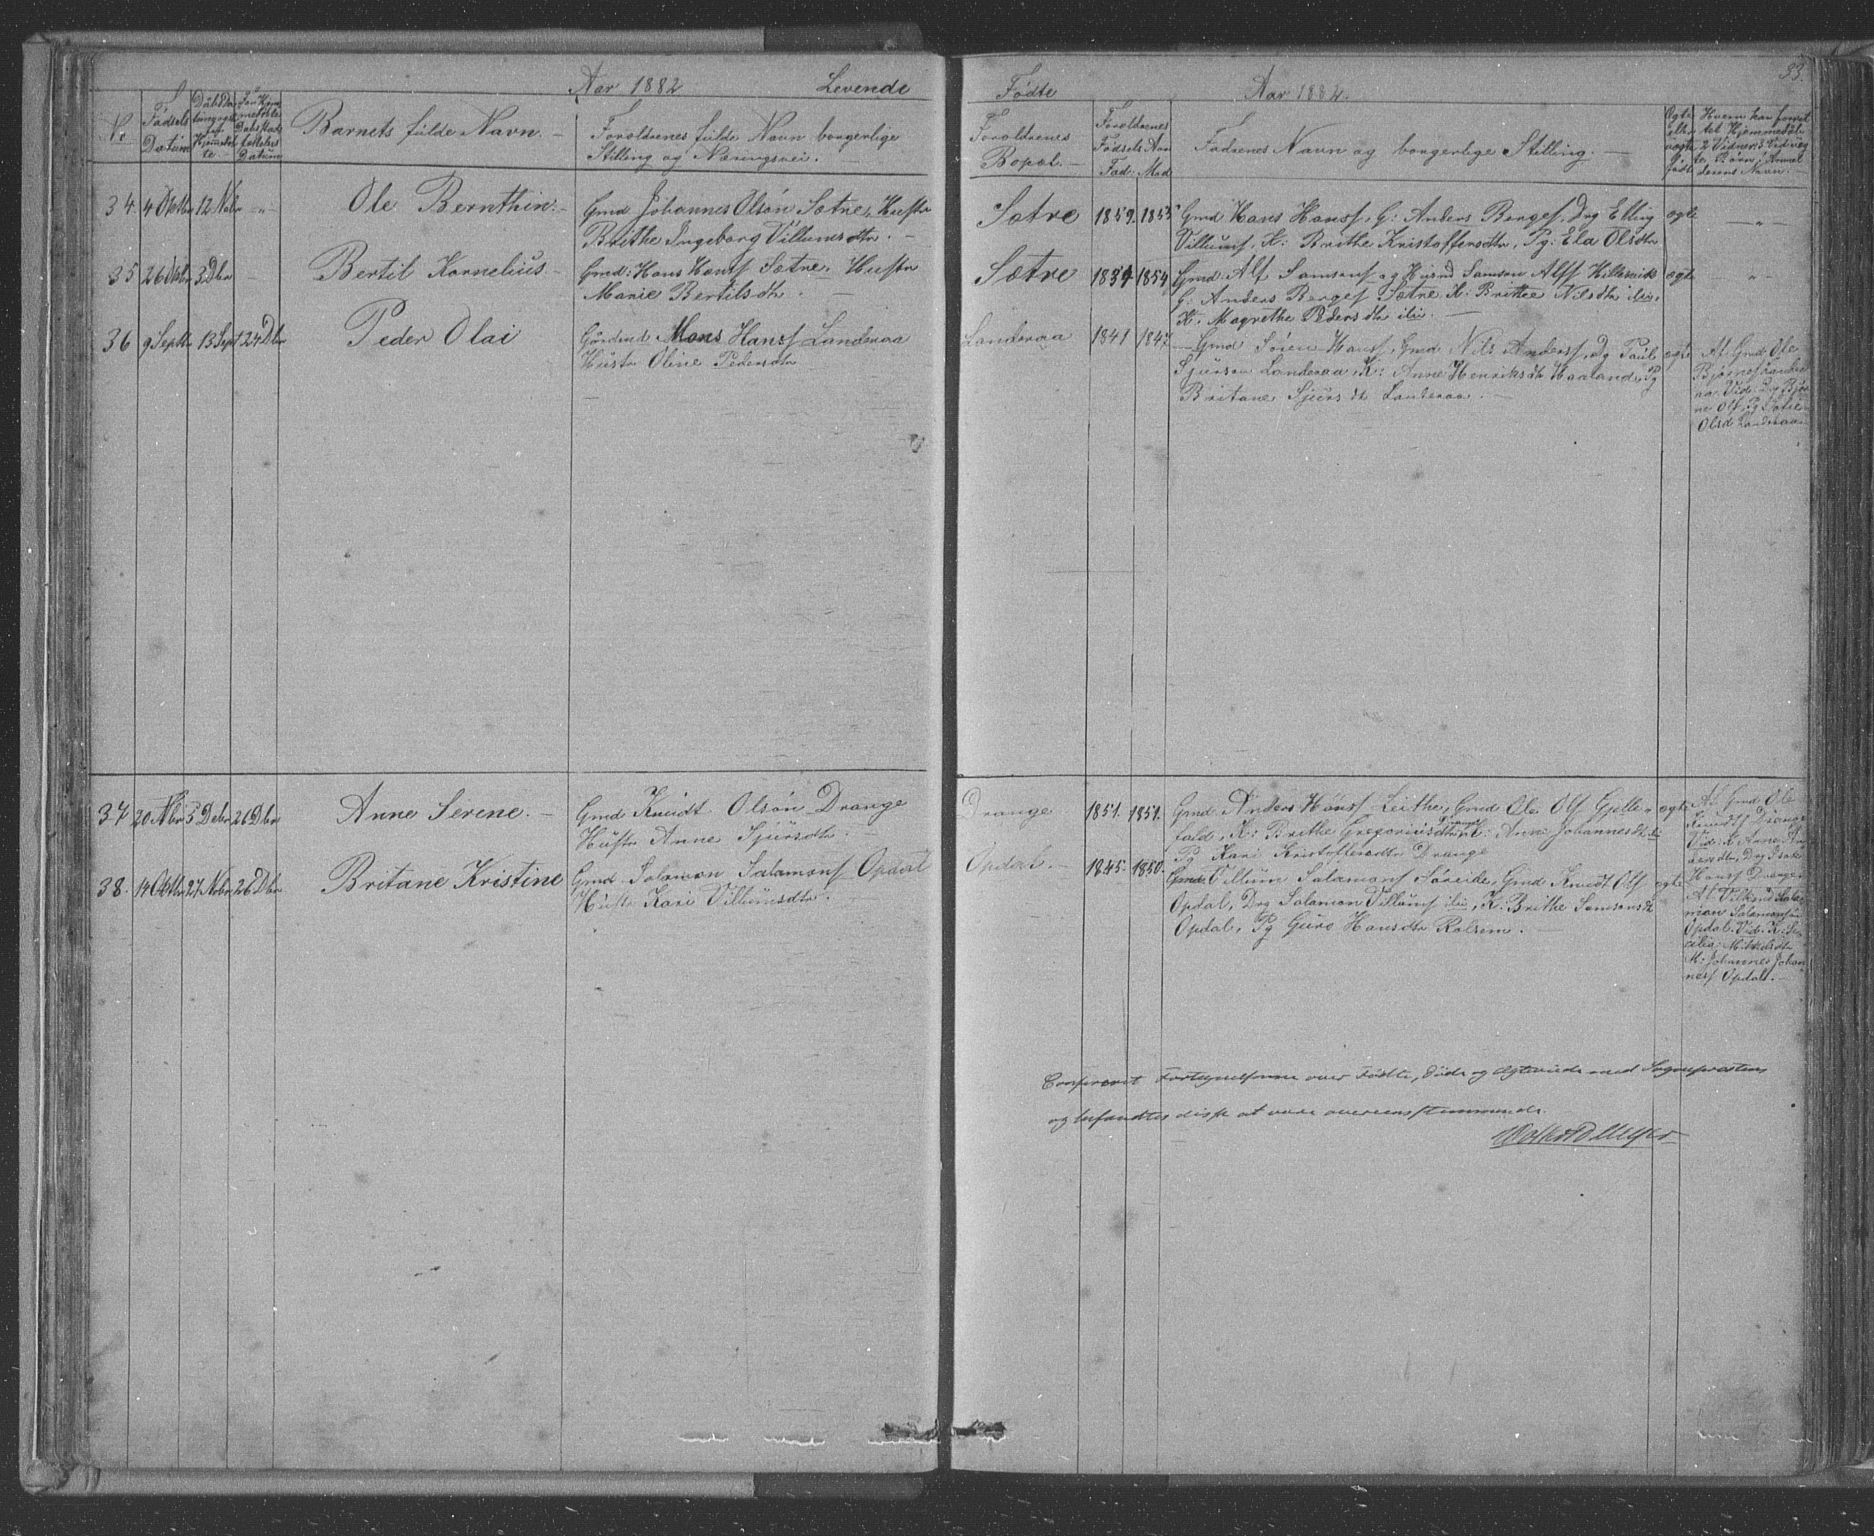 Aar 1882 Levende
Fødte Aar 1882. 33.
No
Fødsels
Datum
Barnets fulde Navn. —
Forældrenes fulde Navn borgerlige
Stilling og Næringsvei.
Forældrenes
Bopæl. —
Forældrenes
Fødsels Aar
Fad. Mod
Faddernes Navn og borgerlige Stilling. —
34. 4 Oktbr 12 Nvbr -"-
Ole Bernthin. —
Gmd Johannes Olsøn Sætre, Hustr
Brithe Ingeborg Villumsdtr. —
Sætre 1859. 1855
Gmd Hans Hansf, G: Anders Bergef, Drg Elling
Villumf, K: Brithe Kristoffersdtr, Pg: Ela Olsdtr
ægte -"-
35 26 Oktbr 3 Dbr —
Bertil Kornelius —
Gmd: Hans Hansf Sætre. Hustr
Marie Bertilsdtr. —
Sætre 1834 1854
Gmd. Alf Samsonf og Husmd Samson Alff Hilkevik
G: Anders Bergef Sætre K: Brithe Nilsdtr ibi,
K. Magrethe Pedersdtr ibi. —
ægte "-
36 9 Septbr 13 Sep 1234 Dbr
Peder Olai
Gårdmd Mons Hansf Landeraa
Hustr Oline Pedersdtr
—
Landeraa 1841 1847
— Gmd Søren Hansf, Gmd Nils Andersf, Dg Paul
Sjursen Landeraa, K: Anne Henriksdtr Haaland, Pg
Britane Sjursdtr Landeraa. —
ægte
Af Gmd Ole
Bjørnsf Lande
raa. Vid: Dg Bjør
ne Olf, Pg
Olsd Landeraa
37 20 Nbr 3 Debr 26 Dbr
Anne Serene. —
Gmd Knudt Olsøn Drange
Hustr Anne Sjursdtr. —
Drange 1851. 1851.
Gmd Anders Hansf Leithe, Gmd Ole Olf Gjelle-
stad, K: Brithe Gregoriusdtr Drange K: Anne Johannesdtr ibi
Pg Kari Kristoffersdtr Drange
ægte
Af Gmd Ole
Knudtf Drange
Vid: K Anne An
dersdtr, Drg Isak
Hansf Drange
38. 14 Oktbr 27 Nvbr 26 Dbr
Britane Kristine
Gmd. Salamon Salamonf Opdal
Hustr Kari Villumsdtr. —
Opdal. — 1845. 1850.
Gmd Villum Salamonf Søreide, Gmd Knudt Olf
Opdal, Drg Salamon Villumf ibi, K: Brithe Samsonsdtr
Opdal, Pg Guro Hansdtr Rolsem. —
ægte
Af Vilkmd Sala
mon Salamonsøn
Opdal. Vid: K. Se
cilia Mikkelsdtr
M: Johannes Johan
nesf Opdal. —
Confereret Fortegnelserne over Fødte, Døde og Egteviede med Sognepræstens
og befandtes disse at være overensstemmende.